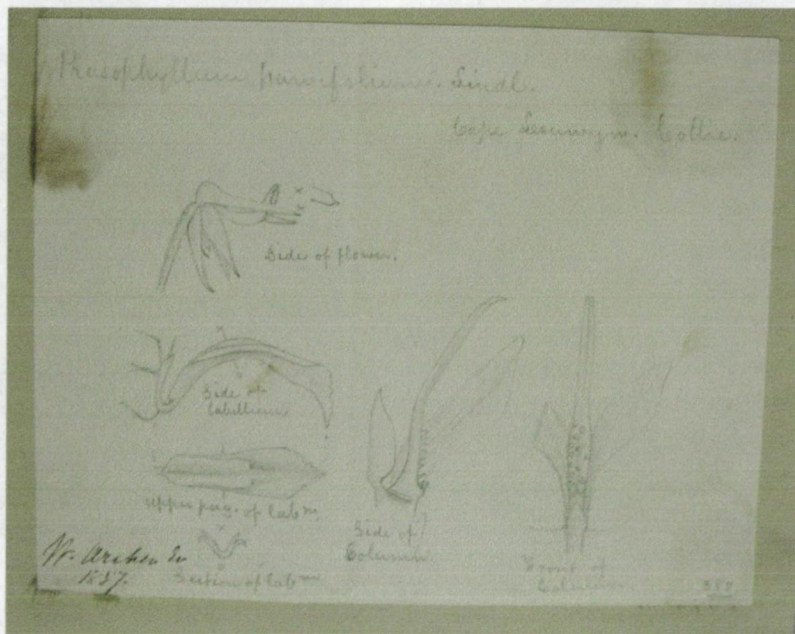 Prasophyllum parvifolium. Lindl.
Cape Leeuwyn. Collie.
Side of flower.
Side of
labellum
upper pag. of labm.
Section of labm
Side of
Column
Front of
Column
W. Archer
1857.